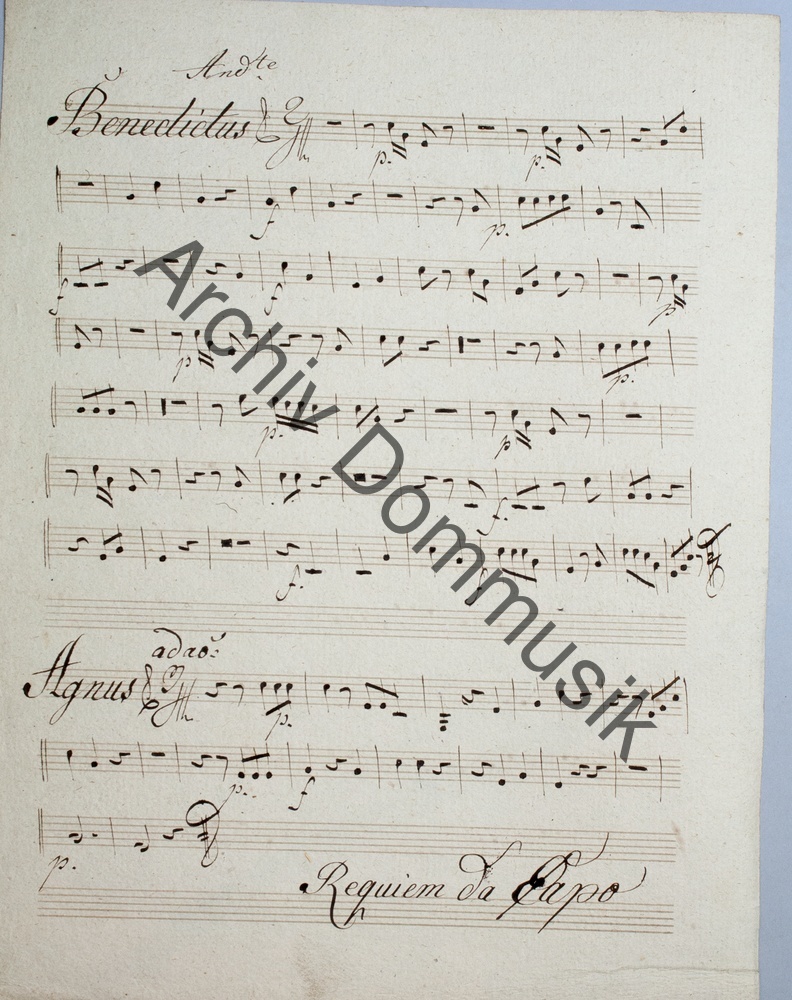 And:te
Benedictus
p. p.
f p.
f f p.
p. p.
p. p.
f.
f. f
adao:
Agnus
p.
p. f
p.
Requiem da Capo
Archiv Dommusik